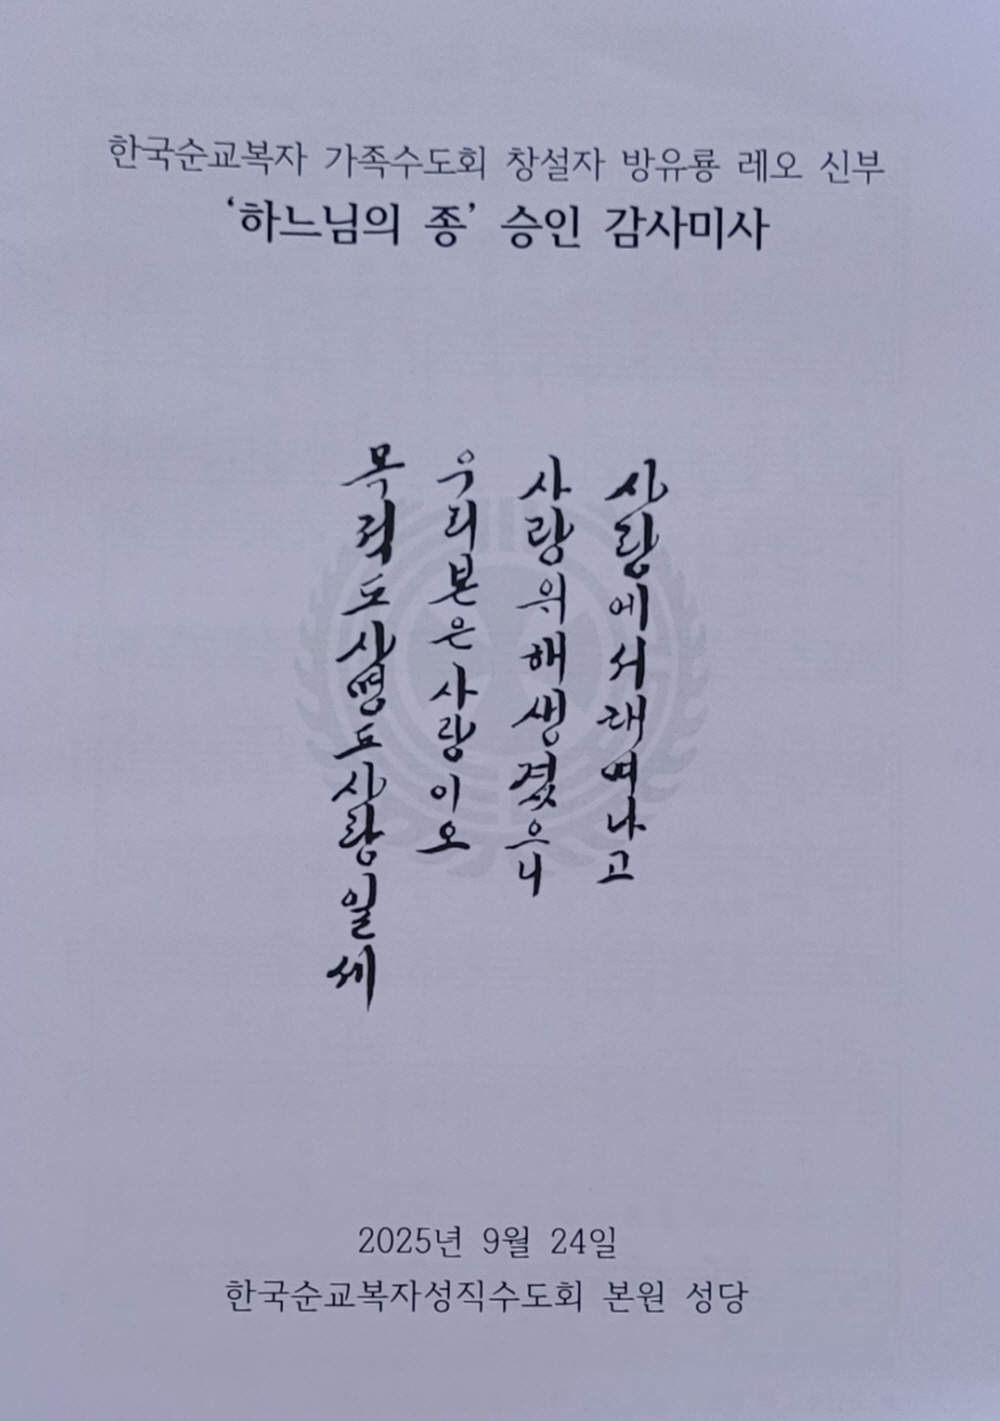 한국순교복자 가족수도회 창설자 방유룡 레오 신부
‘하느님의 종’ 승인 감사미사
사랑에서래여나고
사랑위해생겼으니
우리본은사랑이오
목적도사명도사랑일세
2025년 9월 24일
한국순교복자성직수도회 본원 성당